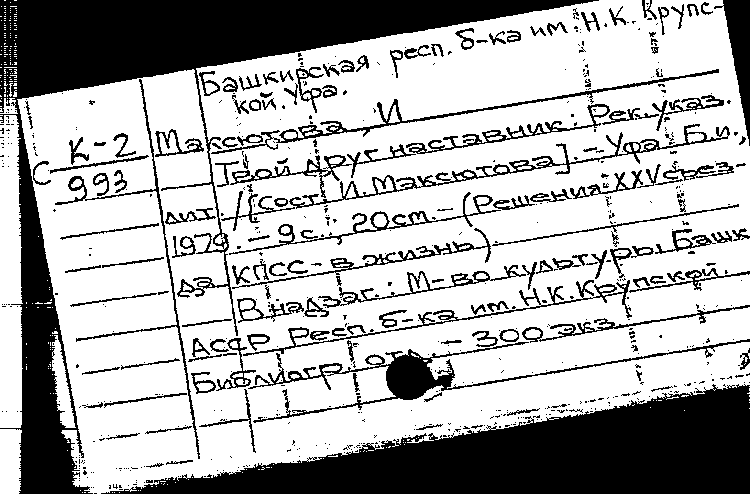 Башкирская респ. б-ка им. Н.К. Крупс-
кой. Уфа.
Максютова, И
С К-2
993
Твой друг наставник: Рек. указ.
лит. / [Сост. И. Максютова]. – Уфа: Б.и.,
1979. – 9 с.; 20 см. – (Решения XXV съез-
да КПСС – в жизнь).
В надзаг.: М-во культуры Башк
АССР Респ. б-ка им. Н.К. Крупской.
Библиогр. отд. – 300 экз.